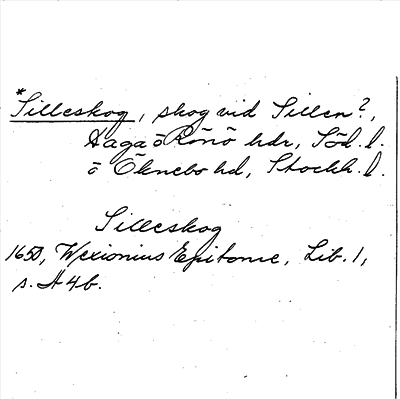 *Silleskog, skog vid Sillen?,
Haga o Rönö hdr, Söd. l.
o Öknebo hd, Stockh. l.
Silleskog
1650, Wexionius Epitome, Lib. 1,
s. H4b.